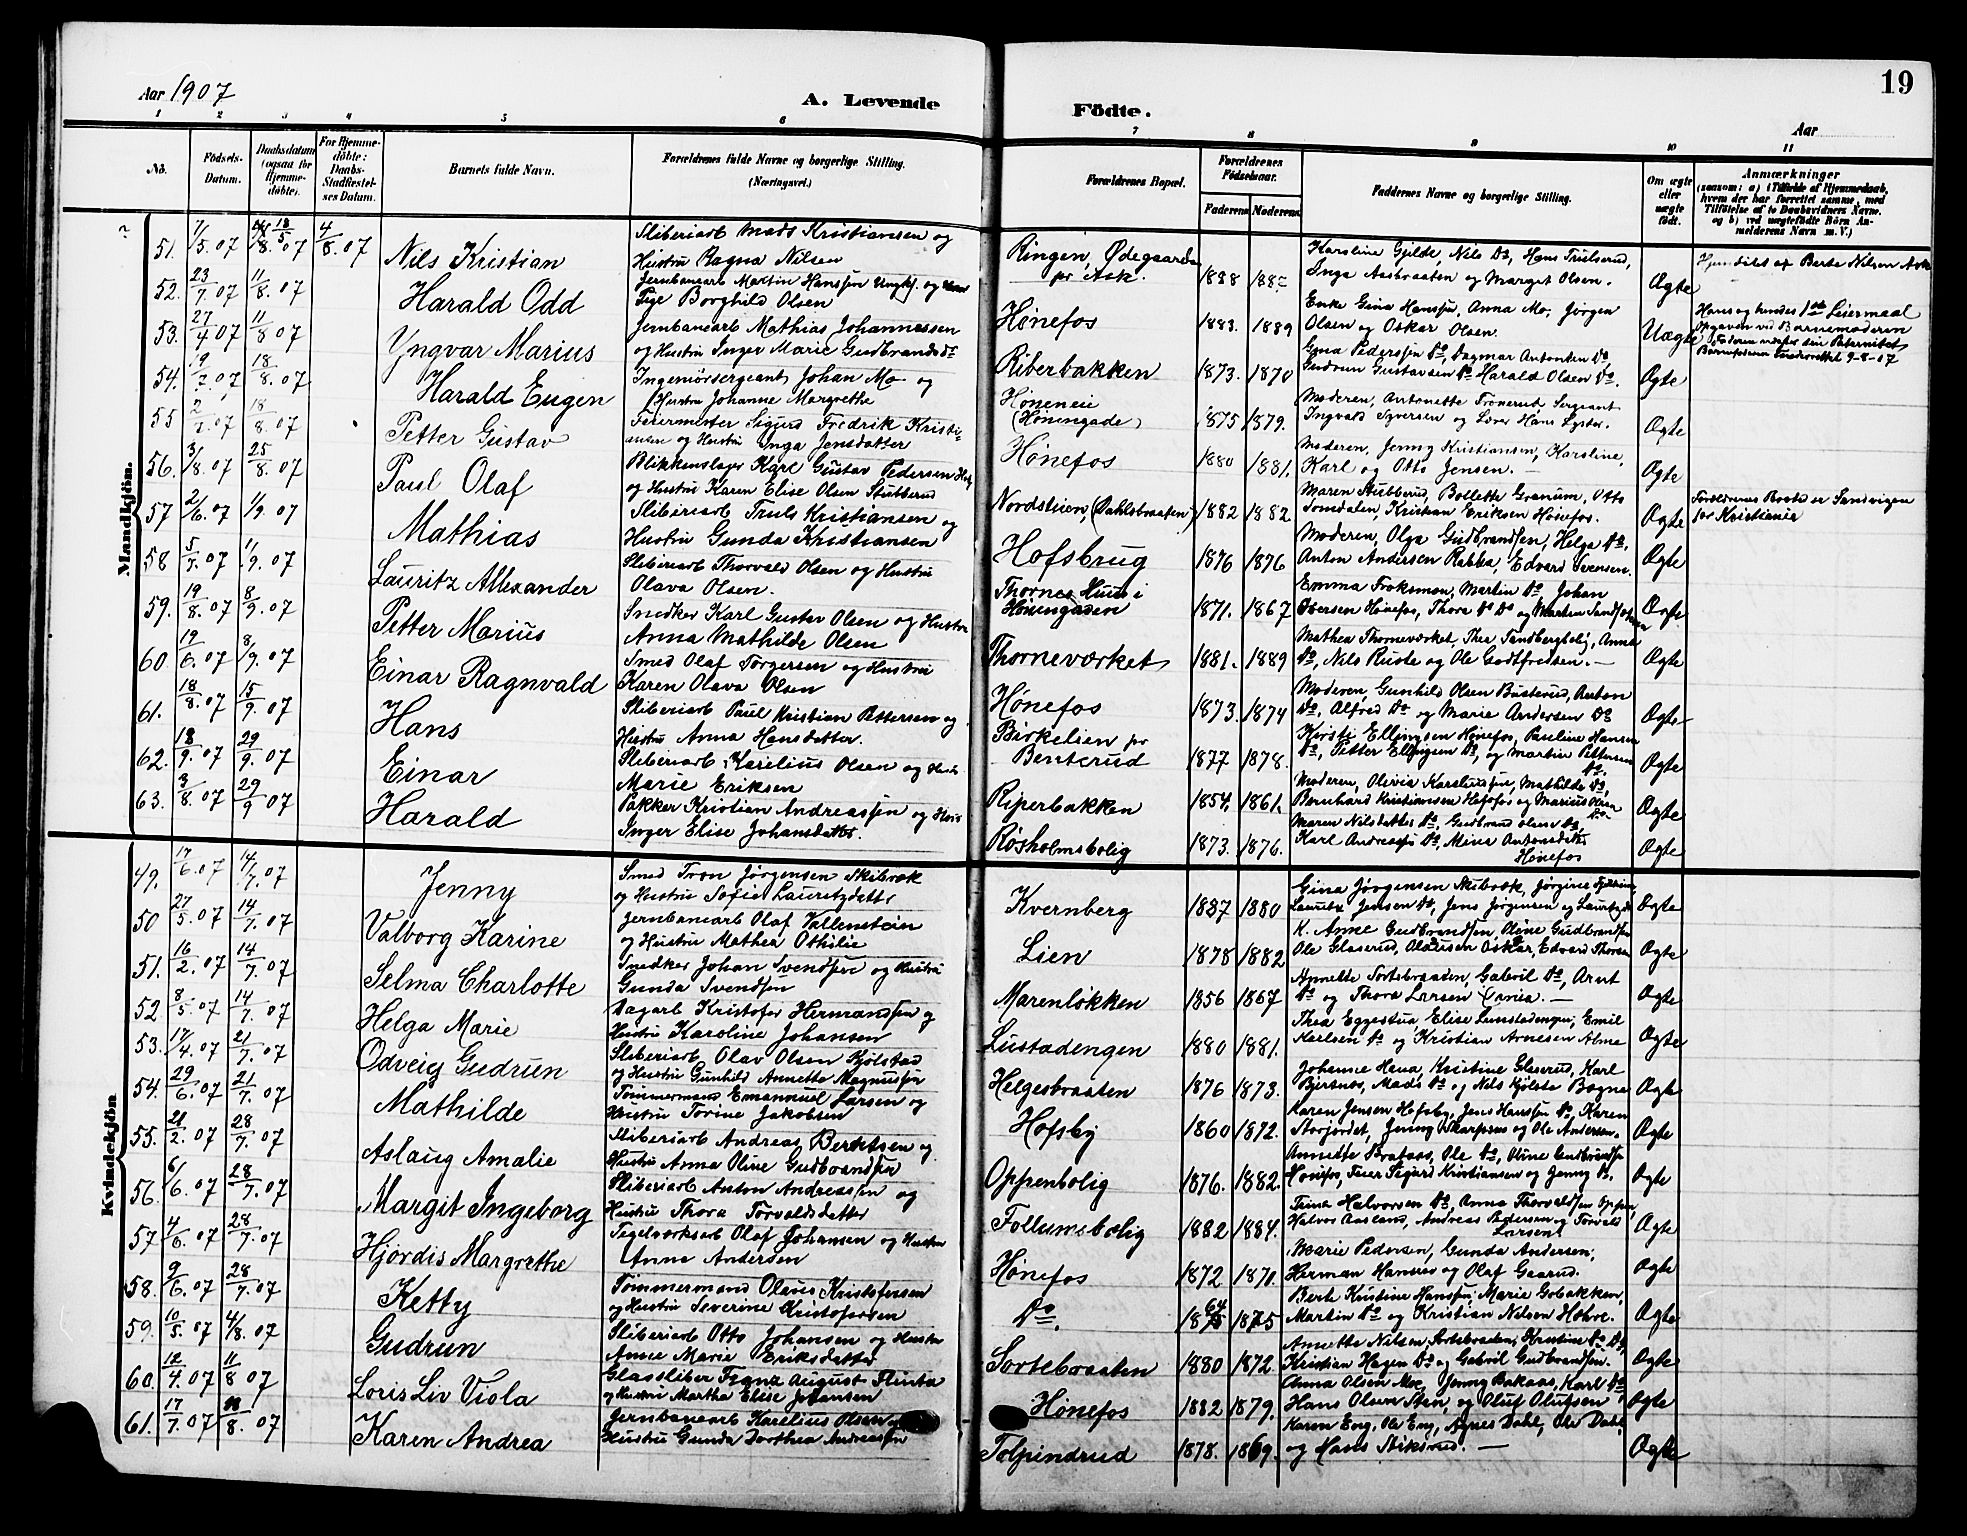 19
Aar 1907
A. Levende
Födte.
Aar
1 2 3 4 5 6 7 8 9 10 11
No.
Födsels-Datum.
Daabsdatum (ogsaa for Hjemme-döbte).
For Hjemme-döbte: Daabs-Stadfæstel-ses Datum.
Barnets fulde Navn.
Forældrenes fulde Navne og borgerlige Stilling. (Næringsvei.)
Forældrenes Bopæl.
Forældrenes Födselsaar.
Faderens Moderens
Faddernes Navne og borgerlige Stilling.
Om ægte eller uægte födt.
Anmærkninger
(saasom: a) i Tilfælde af Hjemmedaab,
hvem der har forrettet samme, med
Tilföielse af to Daabsvidners Navne.
og b) ved uægtefödte Börn An-
melderens Navn m. V.)
Mandkjön.
51. 1/5.07 4/8.07 Nils Kristian Sliberiarb Mads Kristiansen og
Hustru Ragna Nilsen Ringen, Ødegaarden pr Ask. 1888 Karoline Gjelde, Nils Do, Hans
Inga Aasbraaten og Marget Olsen. Ægte
52. 23/7.07 11/8.07 Harald Odd Jernbanearb Martin Hanssen Ungkj. og
Pige Borghild Olsen Hønefos 1883. 1889 Enke Gina Hanssen, Anna Mo, Jørgen
Olsen og Oskar Olsen. Uægte Hans og hendes 1ste Leiermaal
Opgaven ved Barnemoderen
53. 27/4 07 11/8 07 Yngvar Marius Jernbanearb Mathias Johannessen
og Hustru Inger Marie Gudbrandsdr Riberbakken 1873. 1870 Gina Pederssen Do, Dagmar Antonsen Do
Gudrun Gustavsen Do Harald Olsen Do. Ægte
54. 19/7.07 18/8.07 Harald Eugen Ingeniørsergeant Johan Mo og
Hustru Johanne Margrethe Hønengade) 1875 1879. Moderen, Antonette Sergeant
Ingvald Syversen og Hans Lyster. Ægte
55 2/7.07 18/8.07 Petter Gustav Feiermester Sigurd Fredrik Kristi-
ansen og Hustru Inga Jensdatter Hønefos 1880 1881. Moderen, Jenny Kristiansen, Karoline,
Karl og Otto Jensen. Ægte
56. 3/8.07 25/8.07 Paul Olaf Blikkenslager Karl Gustav Pedersen
og Hustru Karen Elise Olsen Stubberud Nordstuen, (Dahlsbraaten) 1882 1882 Maren Stubberud, Bollette Granum, Otto
Somdalen, Kristian Eriksen Hønefos. Ægte Forældrenes Bosted er Sandvigen
for Kristiania
57 2/6.07 1/9.07 Mathias Sliberiarb Truls Kristiansen og
Hustru Gunda Kristiansen Hofsbrug 1876 1876 Moderen, Olga Gudbrandsen, Helga Do.
Anton Andersen Rakka, Edvard Svensen. Ægte
58 5/7.07 1/9.07 Lauritz Allexander Sliberiarb Thorvald Olsen og Hustru
Olava Olsen. Thornes Huus i Hønengaden 1871. 1867 Emma Froksmon, Martin Do Johan
Iversen Hønefos, Thora Do Do Ægte
59. 19/8.07 8/9.07 Petter Marius Snedker Karl Gustav Olsen og Hustru
Anna Mathilde Olsen Thorneværket 1881. 1889 Mathea Thorneværket, Thea Sandbergbolig, Anna
Do, Nils Ruste og Ole Godtfredsen. Ægte
60. 19/6.07 8/9.07 Einar Ragnvald Smed Olaf Torgersen og Hustru
Karen Olava Olsen Hønefos 1873. 1874 Moderen, Gunhild Olsen Busterud, Anton
Do, Alfred Do og Marie Andersen Do Ægte
61. 18/8.07 15/9.07 Hans Sliberiarb Paul Kristian Pettersen og
Hustru Anna Hansdatter. Birkelien pr Benterud 1877 1878. Kirsti Ellingsen Hønefos, Pauline Hansen
Do, Petter Ellingsen Do, og Martin Pettersen Do. Ægte
62. 18/9.07 29/9.07 Einar Sliberiarb Karelius Olsen og
Marie Eriksen Riperbakken 1854. 1861. Moderen, Olivia Kareliussen, Mathilde Do,
Bernhard Kristiansen og Marius Olsen Do. Ægte
63. 3/8.07 29/9 07 Harald Pakker Kristian Andreassen og
Inger Elise Johansdatter. Røsholmsbolig 1873. 1876. Maren Nilsdatter Do, Gudbrand Olsen Do
Karl Andreassen Do, Mina Antonsdatter Hønefos Ægte
Kvindekjön
49. 17/6.07 14/7.07 Jenny Smed Tron Jørgensen Skibræk
og Hustru Sofie Lauritzdatter Kvernberg 1887 1880 Gina Jørgensen Skibræk, Jørgine
Lauritz Jensen Do, Jens Jørgensen og Ægte
50 27/5.07 14/7.07 Valborg Karine Jernbanearb Olaf Vallenstein
og Hustru Mathea Othilie Lien 1878 1882 K. Anne Gudbrandsen, Oline Gudbrandsen
Ole Glaserud, Oskar, Edvard Ægte
51. 16/2.07 14/7.07 Selma Charlotte Snedker Johan Svendsen og Hustru
Gunda Svendsen Marenløkken 1856 1867 Annette Sortebraaten, Gabriel Do, Arnt
Do og Thora Larsen Ægte
52. 8/5.07 14/7.07 Helga Marie Dagarb Kristofer Hermandsen og
Hustru Karoline Johansen Lustadengen 1880 1881. Thea Eggestua Elise Lustadengen, Emil
Karlsen Do og Kristian Arnesen Alme Ægte
53. 17/4.07 21/7.07 Odveig Gudrun Sliberiarb Olav Olsen Kjølstad
og Hustru Gunhild Annette Magnussen Helgesbraaten 1876 1873. Johanne Kristine Glaserud, Karl
Mads Do og Nils Kjølsta Ægte
54. 29/6.07 21/7.07 Mathilde Tømmermand Emanuel Larsen og
Hustru Torine Jakobsen Hofsby 1860 1872. Karen Jensen Hofsby, Jens Hanssen Do, Karen
Jenny og Ole Andersen. Ægte
55. 21/2.07 28/7.07 Aslaug Amalie Sliberiarb Andreas Berntsen og
Hustru Anna Oline Gudbrandsen Oppenbolig 1876. 1882. Annette Ole Do, Oline Gudbrandsen
Hønefos, Feier Sigurd Kristiansen og Jenny Do. Ægte
56. 6/6.07 28/7.07 Margit Ingeborg Sliberiarb Anton Andreassen og
Hustru Thora Torvaldsdatter Follumsbolig 1882 1884. Trina Halvorsen Do, Anna Thorvaldsen Oppen,
Halvor Aasland, Andreas Pedersen og Torvald Larsen Ægte
57 4/6.07 28/7.07 Hjördis Margrethe Teglværksarb Olaf Johansen og Hustru
Anne Andersen Hønefos 1872 1870. Marie Pedersen, Gunda Andersen,
Herman Hansen og Olaf Gaarud. Ægte
58. 9/6.07 28/7.07 Ketty Tømmermand Olaus Kristofersen
og Hustru Severine Kristofersen Do. 1864 1875 Berte Kristine Hanssen, Marie Gobakken,
Martin Do og Kristian Nilsen Ægte
59. 10/5.07 4/8.07 Gudrun Sliberiarb Otto Johansen og Hustru
Anne Marie Eriksdatter Sortebraaten 1880 1872 Annette Nilsen Sortebraaten, Kristine Do Do,
Kristian Hagen Do og Gabriel Gudbrandsen. Ægte
60. 12/4.07 11/8 07 Loris Liv Viola Glassliber Franz August Flinta
og Hustru Martha Elise Johansen Hønefos 1882 1879. Anna Olsen Moe, Jenny Bakaas, Karl Do
Hans Olsen Sten, og Oluf Olufsen Ægte
61. 17/7.07 18/8.07 Karen Andrea Jernbanearb Karelius Olsen og
Hustru Gunda Dorthea Andreassen Tolpinrud 1878. 1869. Karen Eng, Ole Eng, Agnes Dahl, Ole Dahl
og Hans Ægte